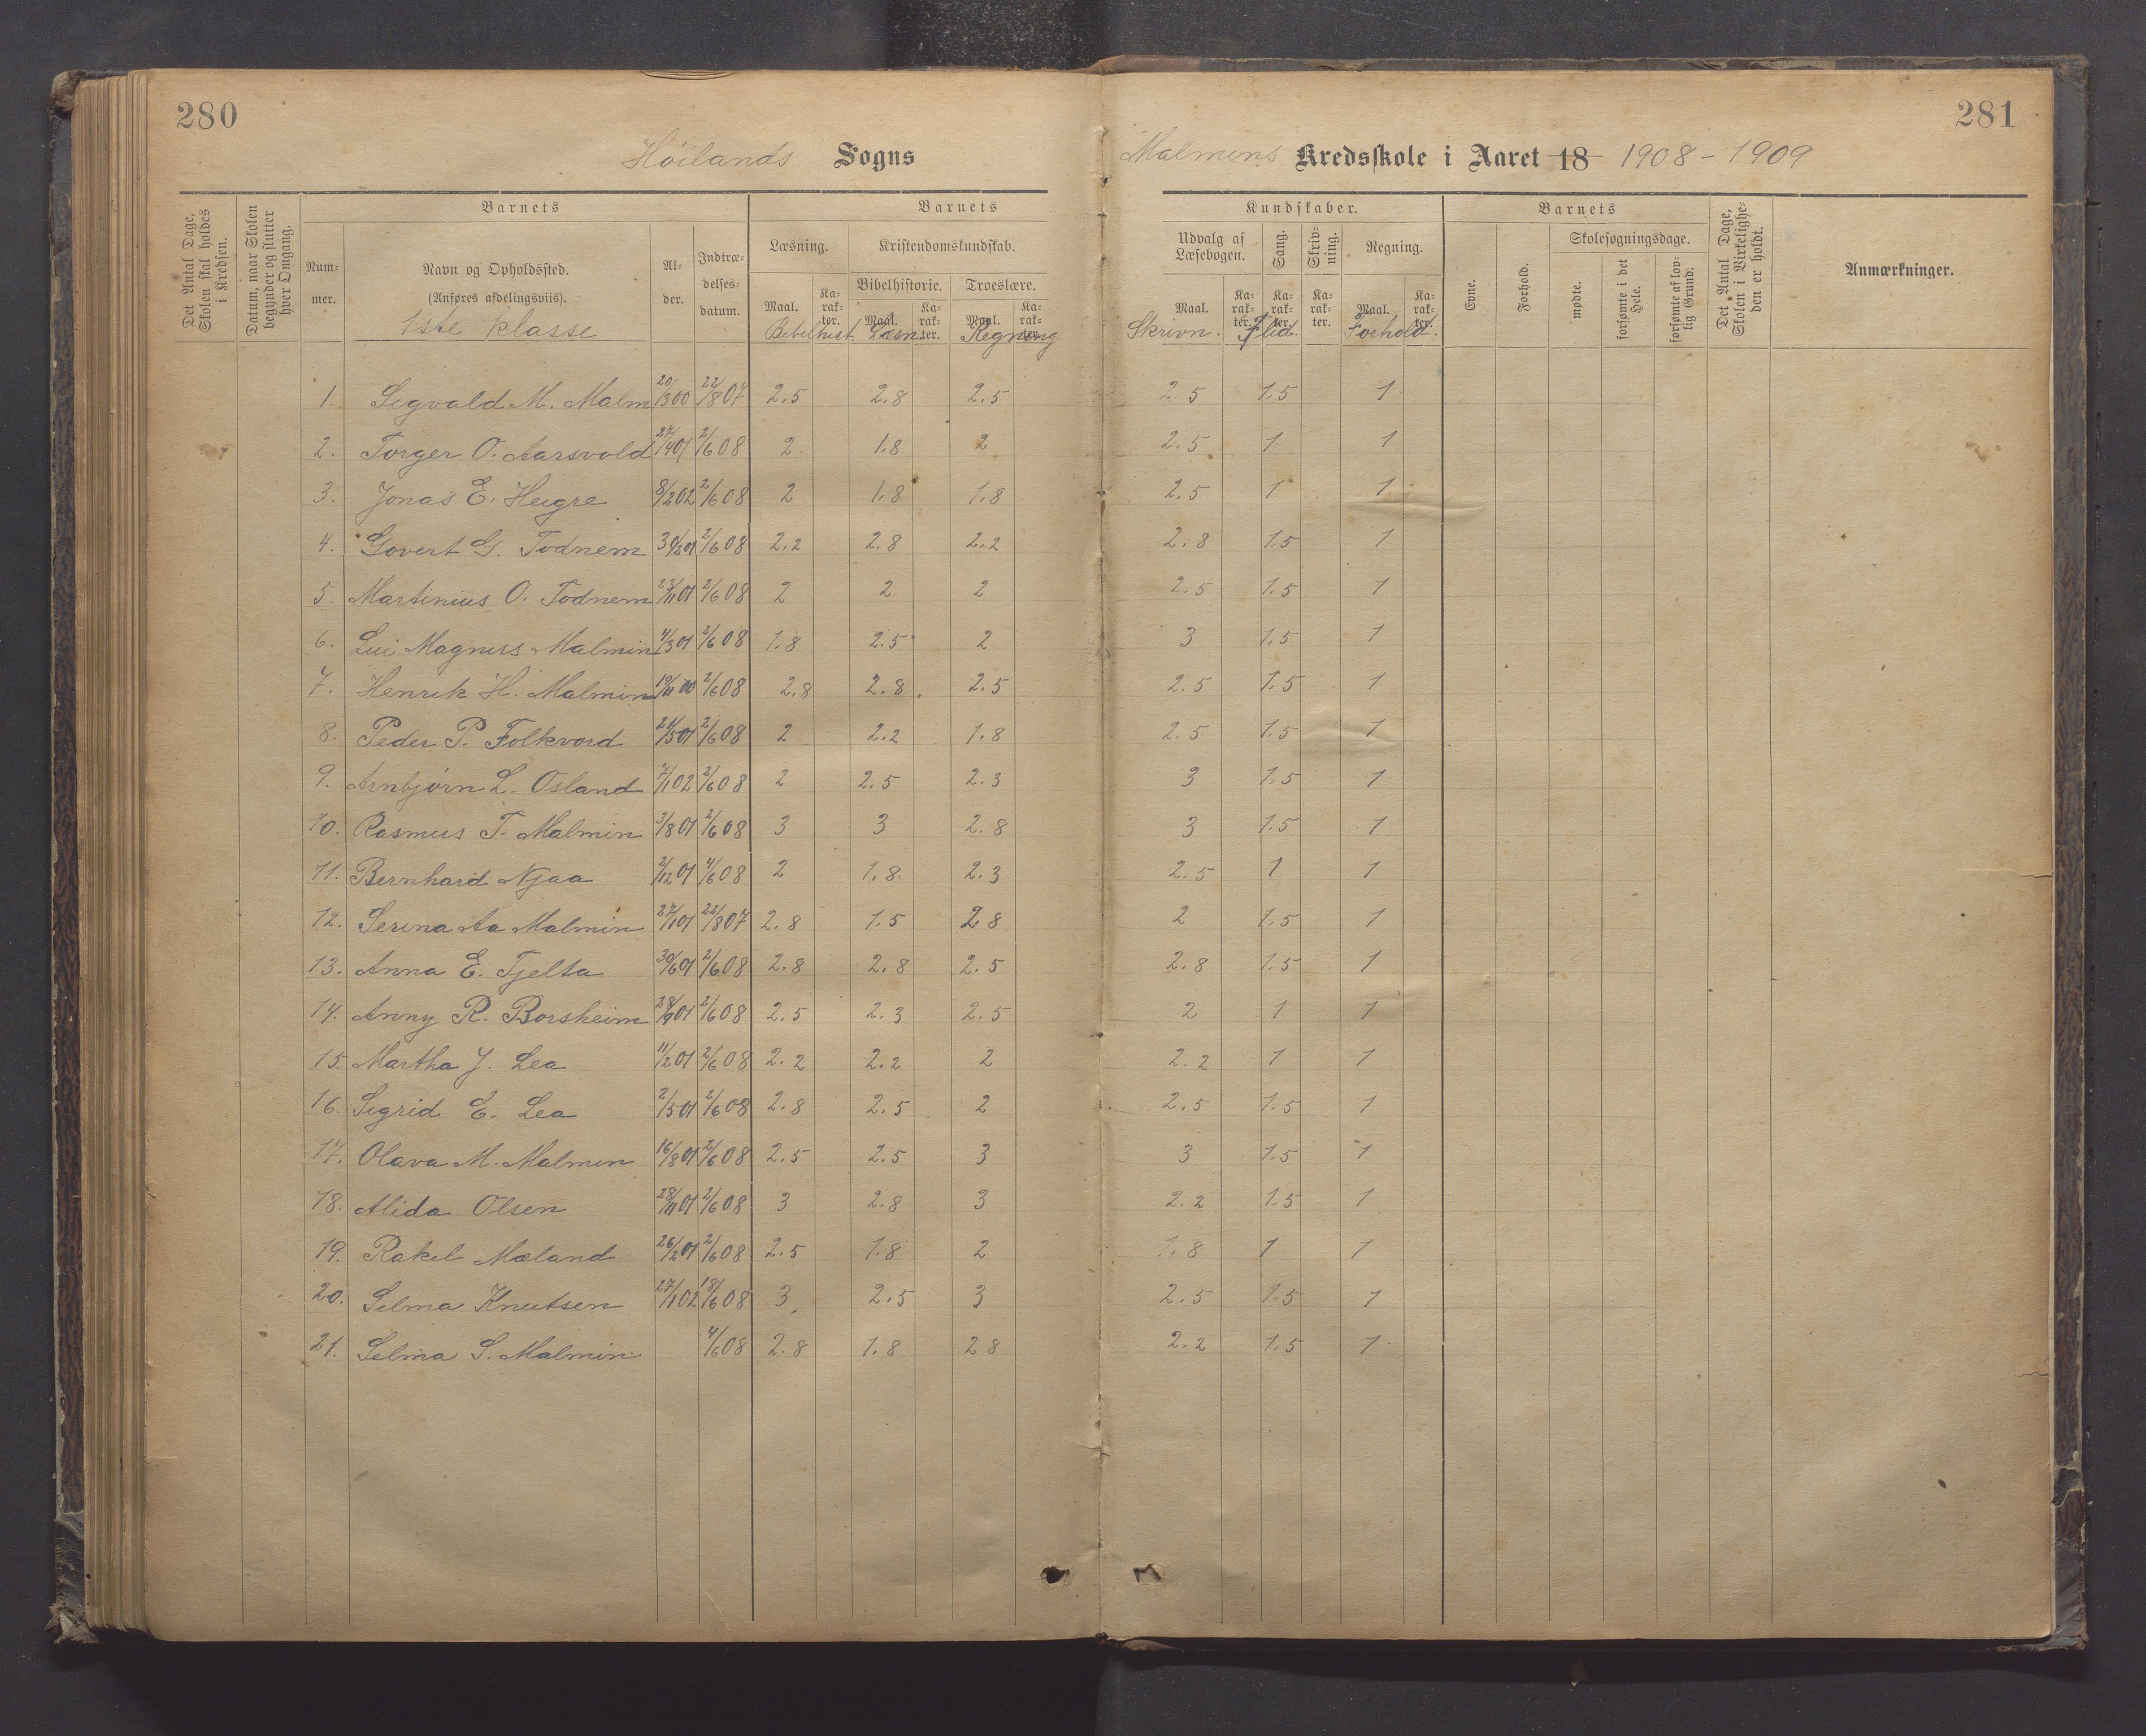 280
281
Höilands Sogns
Malmens Kredsskole i Aaret 18 1908-1909
Det Antal Dage, Skolen skal holdes i Kredsen.
Datum, naar Skolen begynder og slutter hver Omgang.
Barnets
Barnets
Kundskaber.
Barnets
Num-mer.
Navn og Opholdssted.
(Anføres afdelingsviis).
1ste klasse
Al-der.
Indtræ-delses-datum.
Læsning.
Kristendomskundskab.
Bibelhistorie. Troeslære.
Maal. Ka-rak-ter. Maal. Ka-rak-ter. Maal. Ka-rak-ter.
Bibelhist. Læsn. Regning
Udvalg af Læsebogen. Sang. Skriv-ning. Regning.
Maal. Ka-rak-ter. Ka-rak-ter. Ka-rak-ter. Maal. Ka-rak-ter.
Skrivn. Flid. Forhold.
Evne. Forhold. Skolesøgningsdage.
mødte. forsømte i det Hele. forsømte af lov-lig Grund.
Det Antal Dage, Skolen i Virkelighe-den er holdt.
Anmærkninger.
1 Sigvald M. Malm 20/3 00 22/8 07 2.5 2.8 2.5 2.5 1.5 1
2. Torger O. Aarsvold 27/4 01 2/6 08 2 1.8 2 2.5 1 1
3. Jonas E. Heigre 8/2 02 2/6 08 2 1.8 1.8 2.5 1 1
4. Govert G. Todnem 2/6 08 2.2 2.8 2.2 2.8 1.5 1
5. Martinius O. Todnem 23/11 01 2/6 08 2 2 2 2.5 1.5 1
6. Lui Magnus Malmin 4/3 01 2/6 08 1.8 2.5 2 3 1.5 1
7. Henrik H. Malmin 19/11 00 2/6 08 2.8 2.8. 2.5 2.5 1.5 1
8. Peder P. Folkvord 21/5 01 2/6 08 2 2.2 1.8 2.5 1.5 1
9. Arnbjörn L. Osland 7/1 02 2/6 08 2 2.5 2.3 3 1.5 1
10. Rasmus T. Malmin 3/8 01 2/6 08 3 3 2.8 3 1.5 1
11. Bernhard Njaa 2/12 01 4/6 08 2 1.8 2.3 2.5 1 1
12. Serina Aa Malmin 27/1 01 22/8 07 2.8 1.5 2.8 2 1.5 1
13. Anna E. Tjelta 30/6 01 2/6 08 2.8 2.8 2.5 2.8 1.5 1
14. Anny R. Borsheim 28/9 01 2/6 08 2.5 2.3 2.5 2 1 1
15. Martha J. Lea 11/2 01 2/6 08 2.2 2.2 2 2.2 1 1
16. Sigrid E. Lea 2/5 01 2/6 08 2.8 2.5 2 2.5 1.5 1
17. Olava M. Malmin 16/8 01 2/6 08 2.5 2.5 3 3 1.5 1
18. Alida Olsen 28/11 01 2/6 08 3 2.8 3 2.2 1.5 1
19. Rakel Mæland 26/2 01 2/6 08 2.5 1.8 2 1.8 1 1
20. Selma Knutsen 27/1 02 18/6 08 3 2.5 3 2.5 1.5 1
21. Selma S. Malmin 4/6 08 2.8 1.8 2 8 2.2 1.5 1